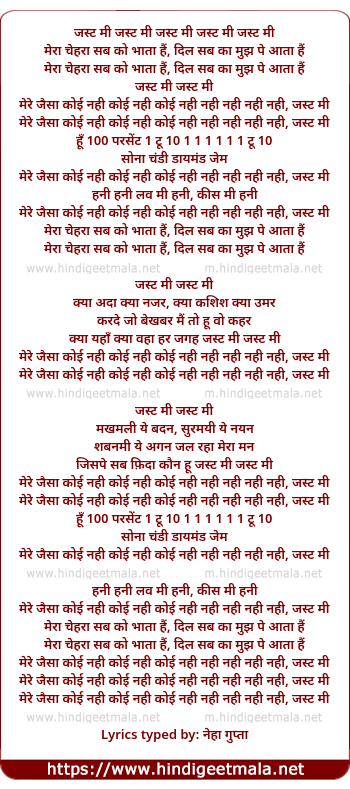 जस्ट मी जस्ट मी जस्ट मी जस्ट मी जस्ट मी
मेरा चेहरा सब को भाता हैं, दिल सब का मुझ पे आता हैं
मेरा चेहरा सब को भाता हैं, दिल सब का मुझ पे आता हैं
जस्ट मी जस्ट मी
मेरे जैसा कोई नही कोई नही कोई नही नही नही नही नही, जस्ट मी
मेरे जैसा कोई नही कोई नही कोई नही नही नही नही नही, जस्ट मी
हूँ 100 परसेंट 1 टू 10 1 1 1 1 1 1 टू 10
सोना चंडी डायमंड जेम
मेरे जैसा कोई नही कोई नही कोई नही नही नही नही नही, जस्ट मी
हनी हनी लव मी हनी, कीस मी हनी
मेरे जैसा कोई नही कोई नही कोई नही नही नही नही नही, जस्ट मी
मेरा चेहरा सब को भाता हैं, दिल सब का मुझ पे आता हैं
मेरा चेहरा सब को भाता हैं, दिल सब का मुझ पे आता हैं
www.hindigeetmala.net m.hindigeetmala.net
जस्ट मी जस्ट मी
क्या अदा क्या नजर, क्या कशिश क्या उमर
करदे जो बेखबर मैं तो हू वो कहर
क्या यहाँ क्या वहा हर जगह जस्ट मी जस्ट मी
मेरे जैसा कोई नही कोई नही कोई नही नही नही नही नही, जस्ट मी
मेरे जैसा कोई नही कोई नही कोई नही नही नही नही नही, जस्ट मी
www.hindigeetmala.net m.hindigeetmala.net
जस्ट मी जस्ट मी
मखमली ये बदन, सुरमयी ये नयन
शबनमी ये अगन जल रहा मेरा मन
जिसपे सब फ़िदा कौन हू जस्ट मी जस्ट मी
मेरे जैसा कोई नही कोई नही कोई नही नही नही नही नही, जस्ट मी
मेरे जैसा कोई नही कोई नही कोई नही नही नही नही नही, जस्ट मी
हूँ 100 परसेंट 1 टू 10 1 1 1 1 1 1 टू 10
सोना चंडी डायमंड जेम
मेरे जैसा कोई नही कोई नही कोई नही नही नही नही नही, जस्ट मी
www.hindigeetmala.net m.hindigeetmala.net
हनी हनी लव मी हनी, कीस मी हनी
मेरे जैसा कोई नही कोई नही कोई नही नही नही नही नही, जस्ट मी
मेरा चेहरा सब को भाता हैं, दिल सब का मुझ पे आता हैं
मेरा चेहरा सब को भाता हैं, दिल सब का मुझ पे आता हैं
मेरे जैसा कोई नही कोई नही कोई नही नही नही नही नही, जस्ट मी
मेरे जैसा कोई नही कोई नही कोई नही नही नही नही नही, जस्ट मी
मेरे जैसा कोई नही कोई नही कोई नही नही नही नही नही, जस्ट मी
www.hindigeetmala.net m.hindigeetmala.net
Lyrics typed by: नेहा गुप्ता
https://www.hindigeetmala.net